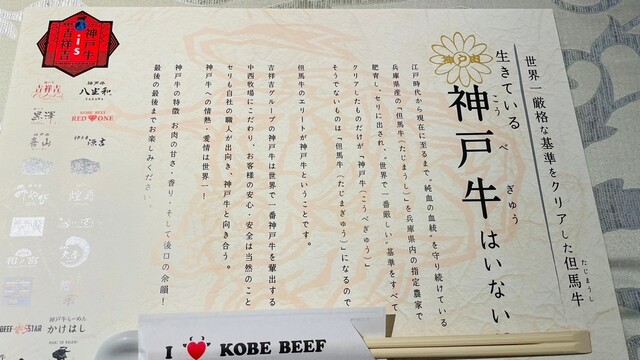 世界一厳格な基準をクリアした但馬牛
たじまうし
生きている
神戸牛はいない
こうべぎゅう
江戸時代から現在に至るまで"純血の血統"を守り続けている
兵庫県産の「但馬牛(たじまうし)」を兵庫県内の指定農家で
肥育し、セリに出され、"世界で一番厳しい"基準をすべて
クリアしたものだけが「神戸牛(こうべぎゅう)」
そうでないものは「但馬牛(たじまぎゅう)」になるので
但馬牛のエリートが神戸牛ということです。
吉祥吉グループの神戸牛は世界で一番神戸牛を輩出する
中西牧場にこだわり、お客様の安心・安全は当然のこと
セリも自社の職人が出向き、神戸牛と向き合う。
神戸牛への情熱・愛情は世界一!
神戸牛の特徴 お肉の甘さ・香り・そして後口の余韻!
最後の最後までお楽しみください。
神戸牛
is
吉祥吉
吉祥吉
神戸牛
八坐和
黒澤
KOBE BEEF
RED ONE
神戸牛
吉山
みやび
和・宮
BEEF STAR
神戸牛らーめん
かけはし
I KOBE BEEF